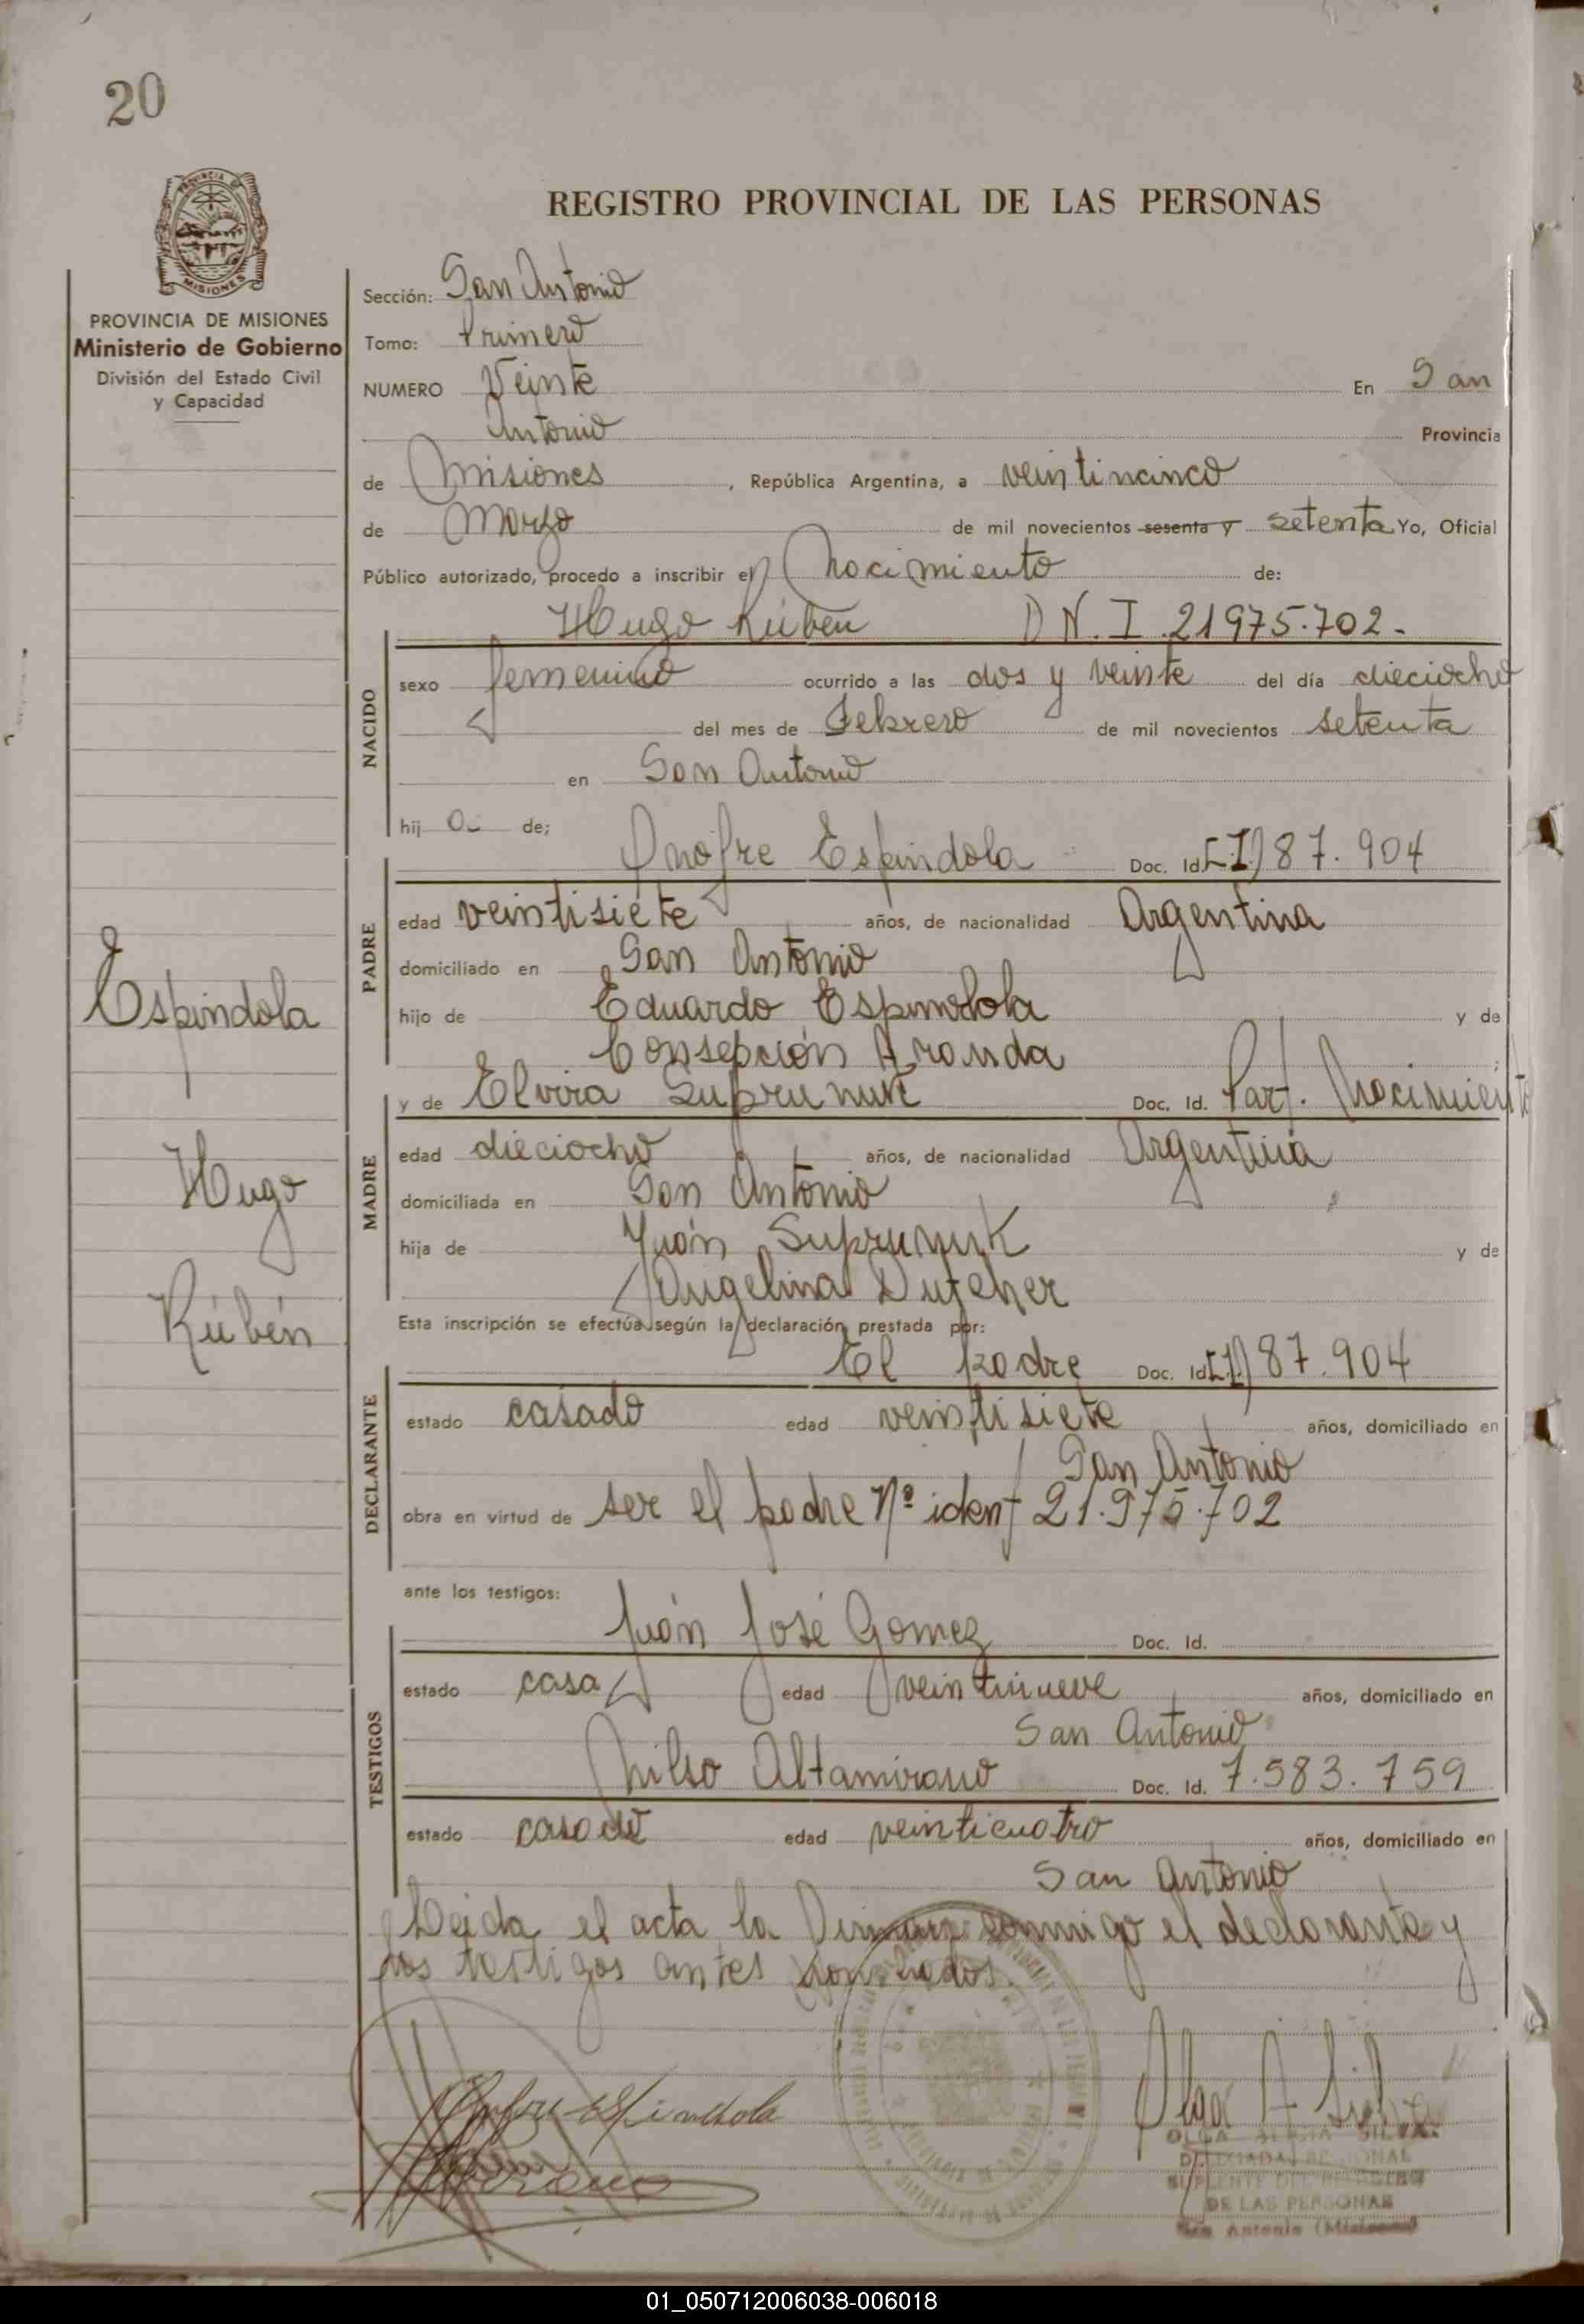 20
REGISTRO PROVINCIAL DE LAS PERSONAS
PROVINCIA DE MISIONES
MISIONES
PROVINCIA DE MISIONES
Ministerio de Gobierno
División del Estado Civil
y Capacidad
Sección: San Antonio
Tomo: Primero
NUMERO Veinte En San
Antonio Provincia
de Misiones, República Argentina, a veintincinco
de Marzo de mil novecientos sesenta y setenta Yo, Oficial
Público autorizado, procedo a inscribir el Nacimiento de:
Hugo Rúben D N. I. 21975.702.-
NACIDO
sexo femenino ocurrido a las dos y veinte del día dieciocho
del mes de Febrero de mil novecientos setenta
en San Antonio
hij o de;
Onofre Espindola Doc. Id. 87.904
PADRE
edad veintisiete años, de nacionalidad Argentina
domiciliado en San Antonio
hijo de Eduardo Espindola y de
Consepción Aranda
Espindola
Hugo
Rúbén
y de Elvira Suprunuk Doc. Id. Part. Nacimiento
MADRE
edad dieciocho años, de nacionalidad Argentina
domiciliada en San Antonio
hija de Yuán Suprunuk y de
Angelina
Esta inscripción se efectúa según la declaración prestada por:
El padre Doc. Id. 87.904
DECLARANTE
estado casado edad veintisiete años, domiciliado en
San Antonio
obra en virtud de ser el padre Nº ident 21.975.702
ante los testigos:
Juán José Gomez Doc. Id.
TESTIGOS
estado casa edad veintinueve años, domiciliado en
San Antonio
Nilso Altamirano Doc. Id. 7.583.759
estado casado edad veinticuatro años, domiciliado en
San Antonio
Leida el acta la Firman conmigo el declarante y
los testigos antes nombrados.
Onofre Espindola
Olga A Silva
OLGA SILVA
DELEGADA REGIONAL
SUPLENTE DEL REGISTRO
DE LAS PERSONAS
San Antonio (Misiones)
01_050712006038-006018